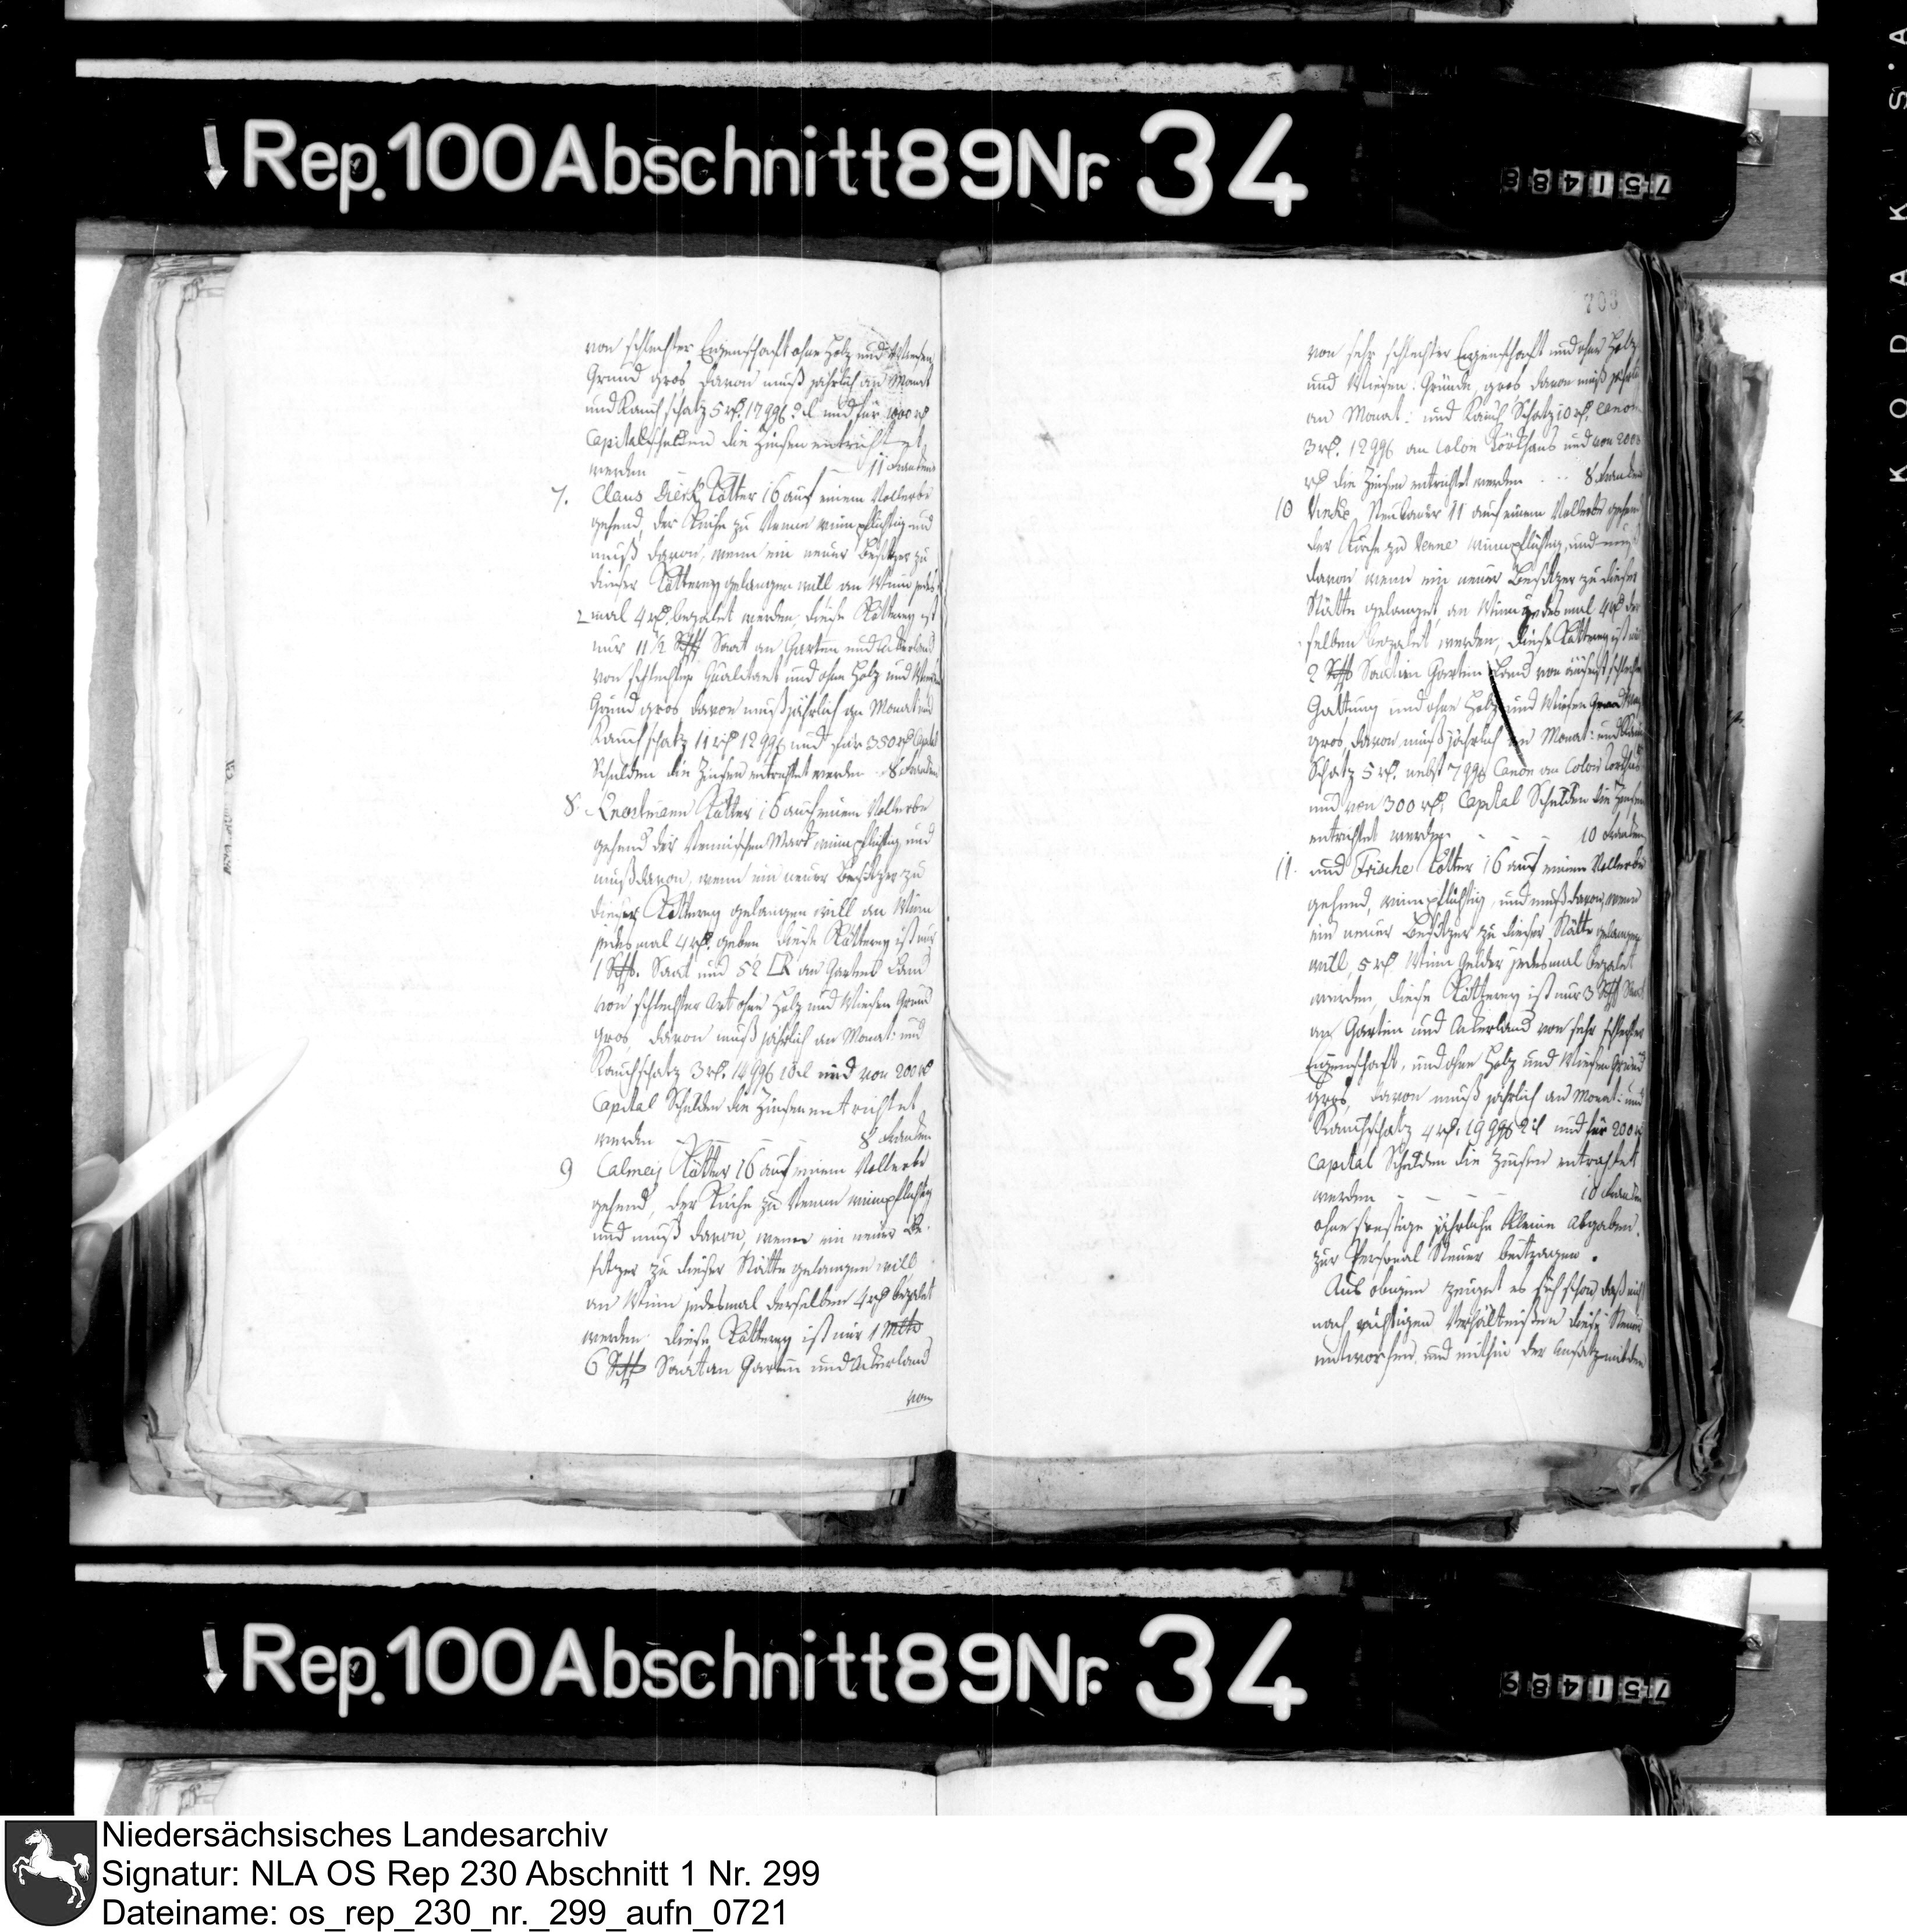 Rep. 100 Abschnitt 89 Nr. 34
751488
von schlechter Eigenschaft ohne Holz und Wiesen
Grund gros davon muß jährlich an Monat
und Rauchschatz 5 rth. 17 ggl und für 1000 rth
Capitalschulden die Zinsen entrichtet
werden
7. Claus Dierk Kötter 16 auf einem Vollerbe
gehend, der Kirche zu Venne winnpflichtig und
muß davon, wenn ein neuer Besitzer zu
dieser Kötterey gelangen will an Winn jedes
mal 4 rth. bezalet werden, diese Kötterey ist
nur 11½ Schff Saat an Garten und Ackerland
von schlechter Qualitaet und ohne Holz und Wiesen
Grund gros davon muß jährlich an Monat und
Rauchschatz 11 rth 12 ggl und für 350 rth Capital
Schulden die Zinsen entrichtet werden
8. Knostmann Kötter 16 auf einem Vollerbe
gehend der Vennischen Mark winnpflichtig und
muß davon, wenn ein neuer Besitzer zu
dieser Kötterey gelangen will an Winn
jedesmal 4 rth. geben diese Kötterey ist nur
1 Schff. Saat und 52 □R an Garten Land
von schlechter Art ohne Holz und Wiesen Grund
gros davon muß jährlich an Monat: und
Rauchschatz 3 rth. 14 ggl und von 200 rth
Capital Schulden die Zinsen entrichtet
werden
9 Calmeij Kötter 16 auf einem Vollerbe
gehend, der Kirche zu Venne winnpflichtig
und muß davon, wenn ein neuer Be
sitzer zu dieser Stätte gelangen will
an Winn jedesmal derselben 4 rth bezalet
werden diese Kötterey ist nur 1 Mltr
6 Schff Saat an Garten und Ackerland
von
703
von sehr schlechter Eigenschaft und ohne Holz
und Wiesen: Gründe, gros davon muß jährlich
an Monat: und Rauch Schatz 10 rth. Canon
3 rth. 12 ggl an Colon und von 200
rth die Zinsen entrichtet werden
10 Vincke, Neubauer 11 auf einem Vollerbe gehend
der Kirche zu Venne winnpflichtig, und muß
davon wenn ein neuer Besitzer zu dieser
Stätte gelanget, an Winn jedesmal 4 rth der
selben bezalet werden, diese Kötterey ist nur
2 Schff Saat an Garten Land von äusserst schlechter
Gattung und ohne Holz und Wiesen
gros, davon muß jährlich an Monat: und Rauch
Schatz 5 rth. nebst 7 ggl Canon an Colon
und von 300 rth. Capital Schulden die Zinsen
entrichtet werden
11. und Frische Kötter 16 auf einem Vollerbe
gehend, winnpflichtig, und muß davon, wenn
ein neuer Besitzer zu dieser Stätte gelangen
will, 5 rth. Winn Gelder jedesmal bezalet
werden, diese Kötterey ist nur 3 Schff Saat
an Garten und Ackerland von sehr schlechter
Eigenschaft, und ohne Holz und Wiesen Grund
gros, davon muß jährlich an Monat: und
Rauchschatz 4 rth. 19 ggl und für 200 rth
Capital Schulden die Zinsen entrichtet
werden
ohne sonstige jährliche kleine Abgaben
zur Personal Steuer beitragen.
Aus obigen zeiget es sich schon daß nicht
nach richtigen Verhältnißen diese Steuer
entworfen, und mithin der Ansatz mit den
Rep. 100 Abschnitt 89 Nr. 34
751489
KODAK
Niedersächsisches Landesarchiv
Signatur: NLA OS Rep 230 Abschnitt 1 Nr. 299
Dateiname: os_rep_230_nr._299_aufn_0721